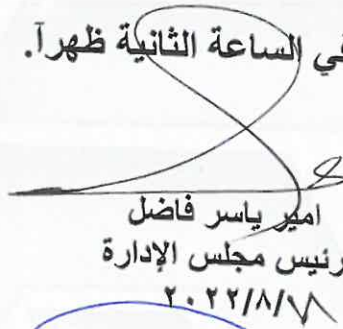 في الساعة الثانية ظهراً.
امير ياسر فاضل
رئيس مجلس الإدارة
٢٠٢٢/٨/١٧